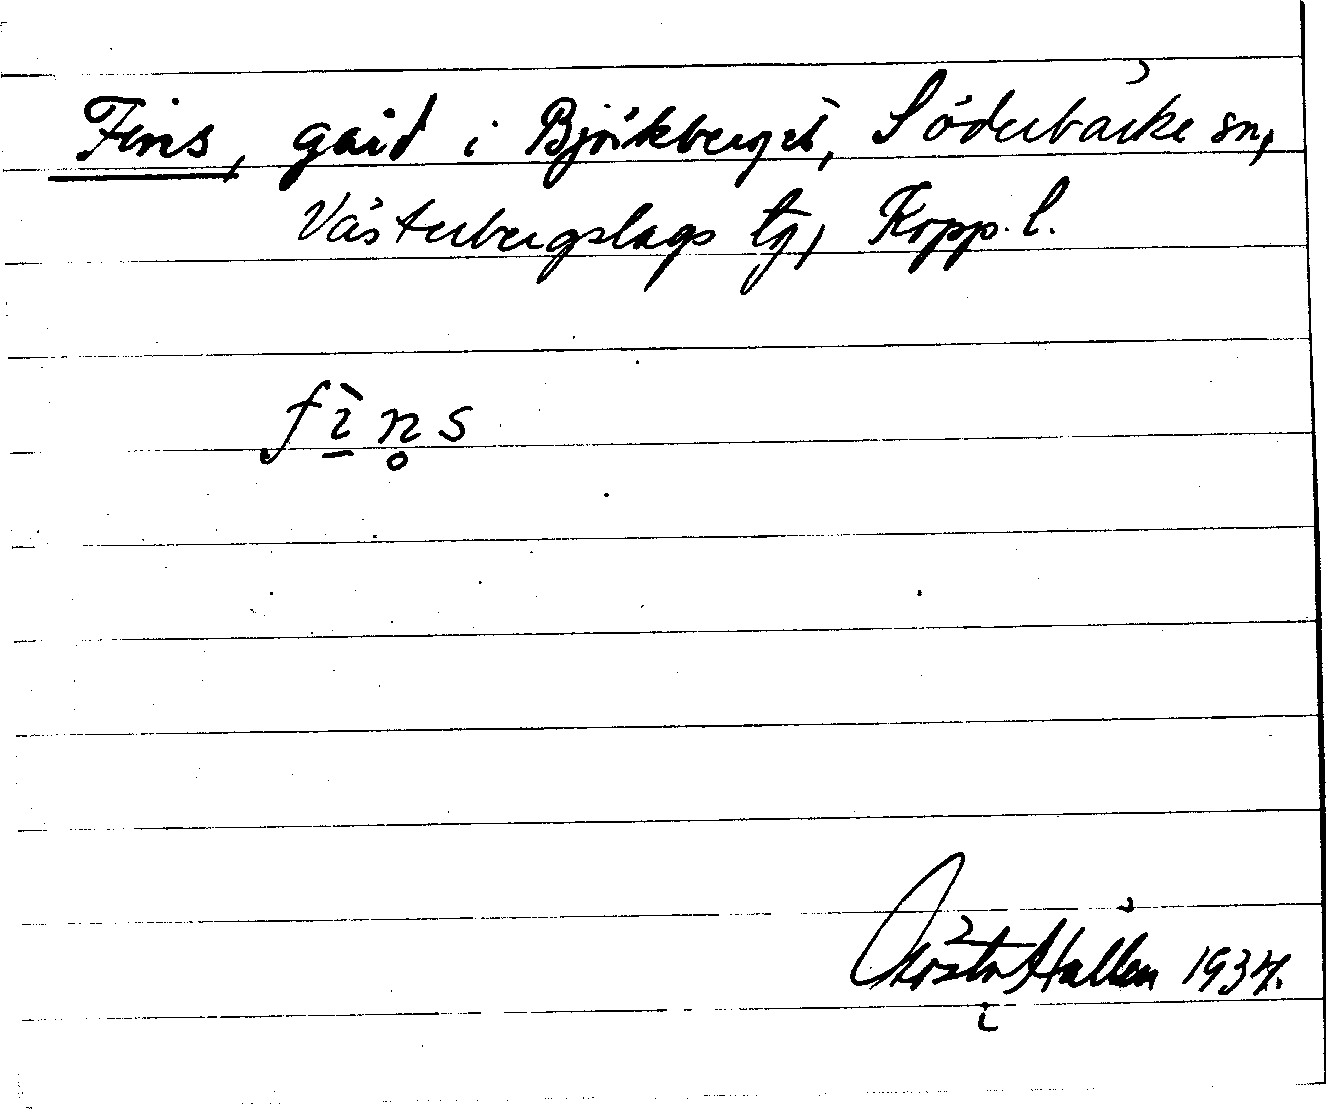 Fins, gård i Björkberget, Söderbärke sn,
Västerbergslags tg, Kopp. l.
fì̱n̥s
Gösta Hallén 1934.